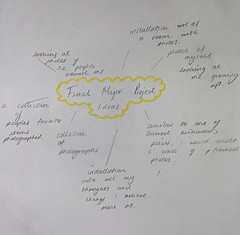 Final Major Project
Ideas
installation out of
a room with
photos.
photos of
myself.
looking at
me growing
up.
similar to one of
piece, i would create
a wall of
photos.
installation
with all my
thoughts and
things i believe
collection
of
photographs
a collection
of
peoples favorite
items
photographed.
looking at
photos of
the people
around me.